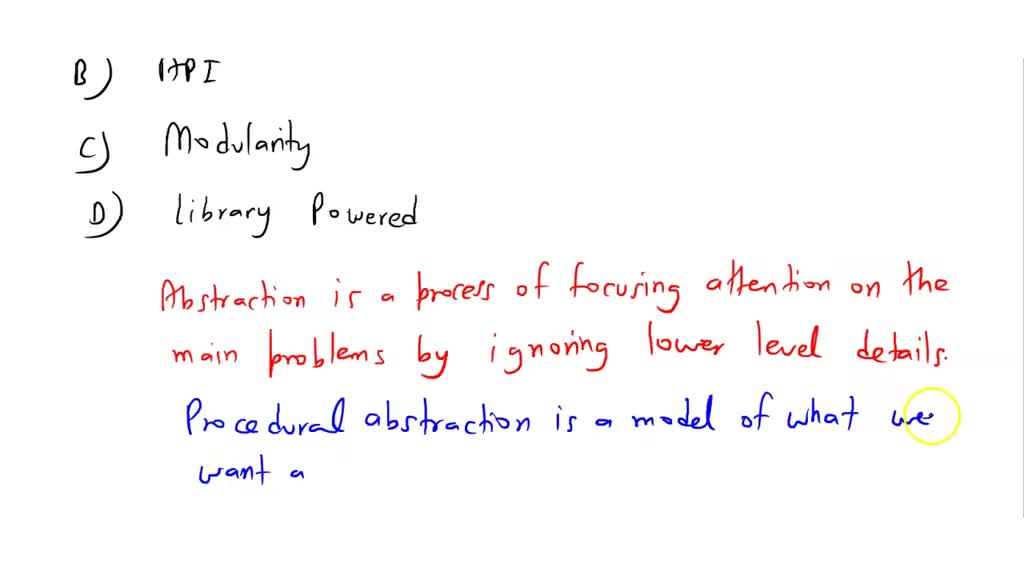 B) API
C) Modularity
D) Library Powered
Abstraction is a process of focusing attention on the
main problems by ignoring lower level details.
Procedural abstraction is a model of what we
want a